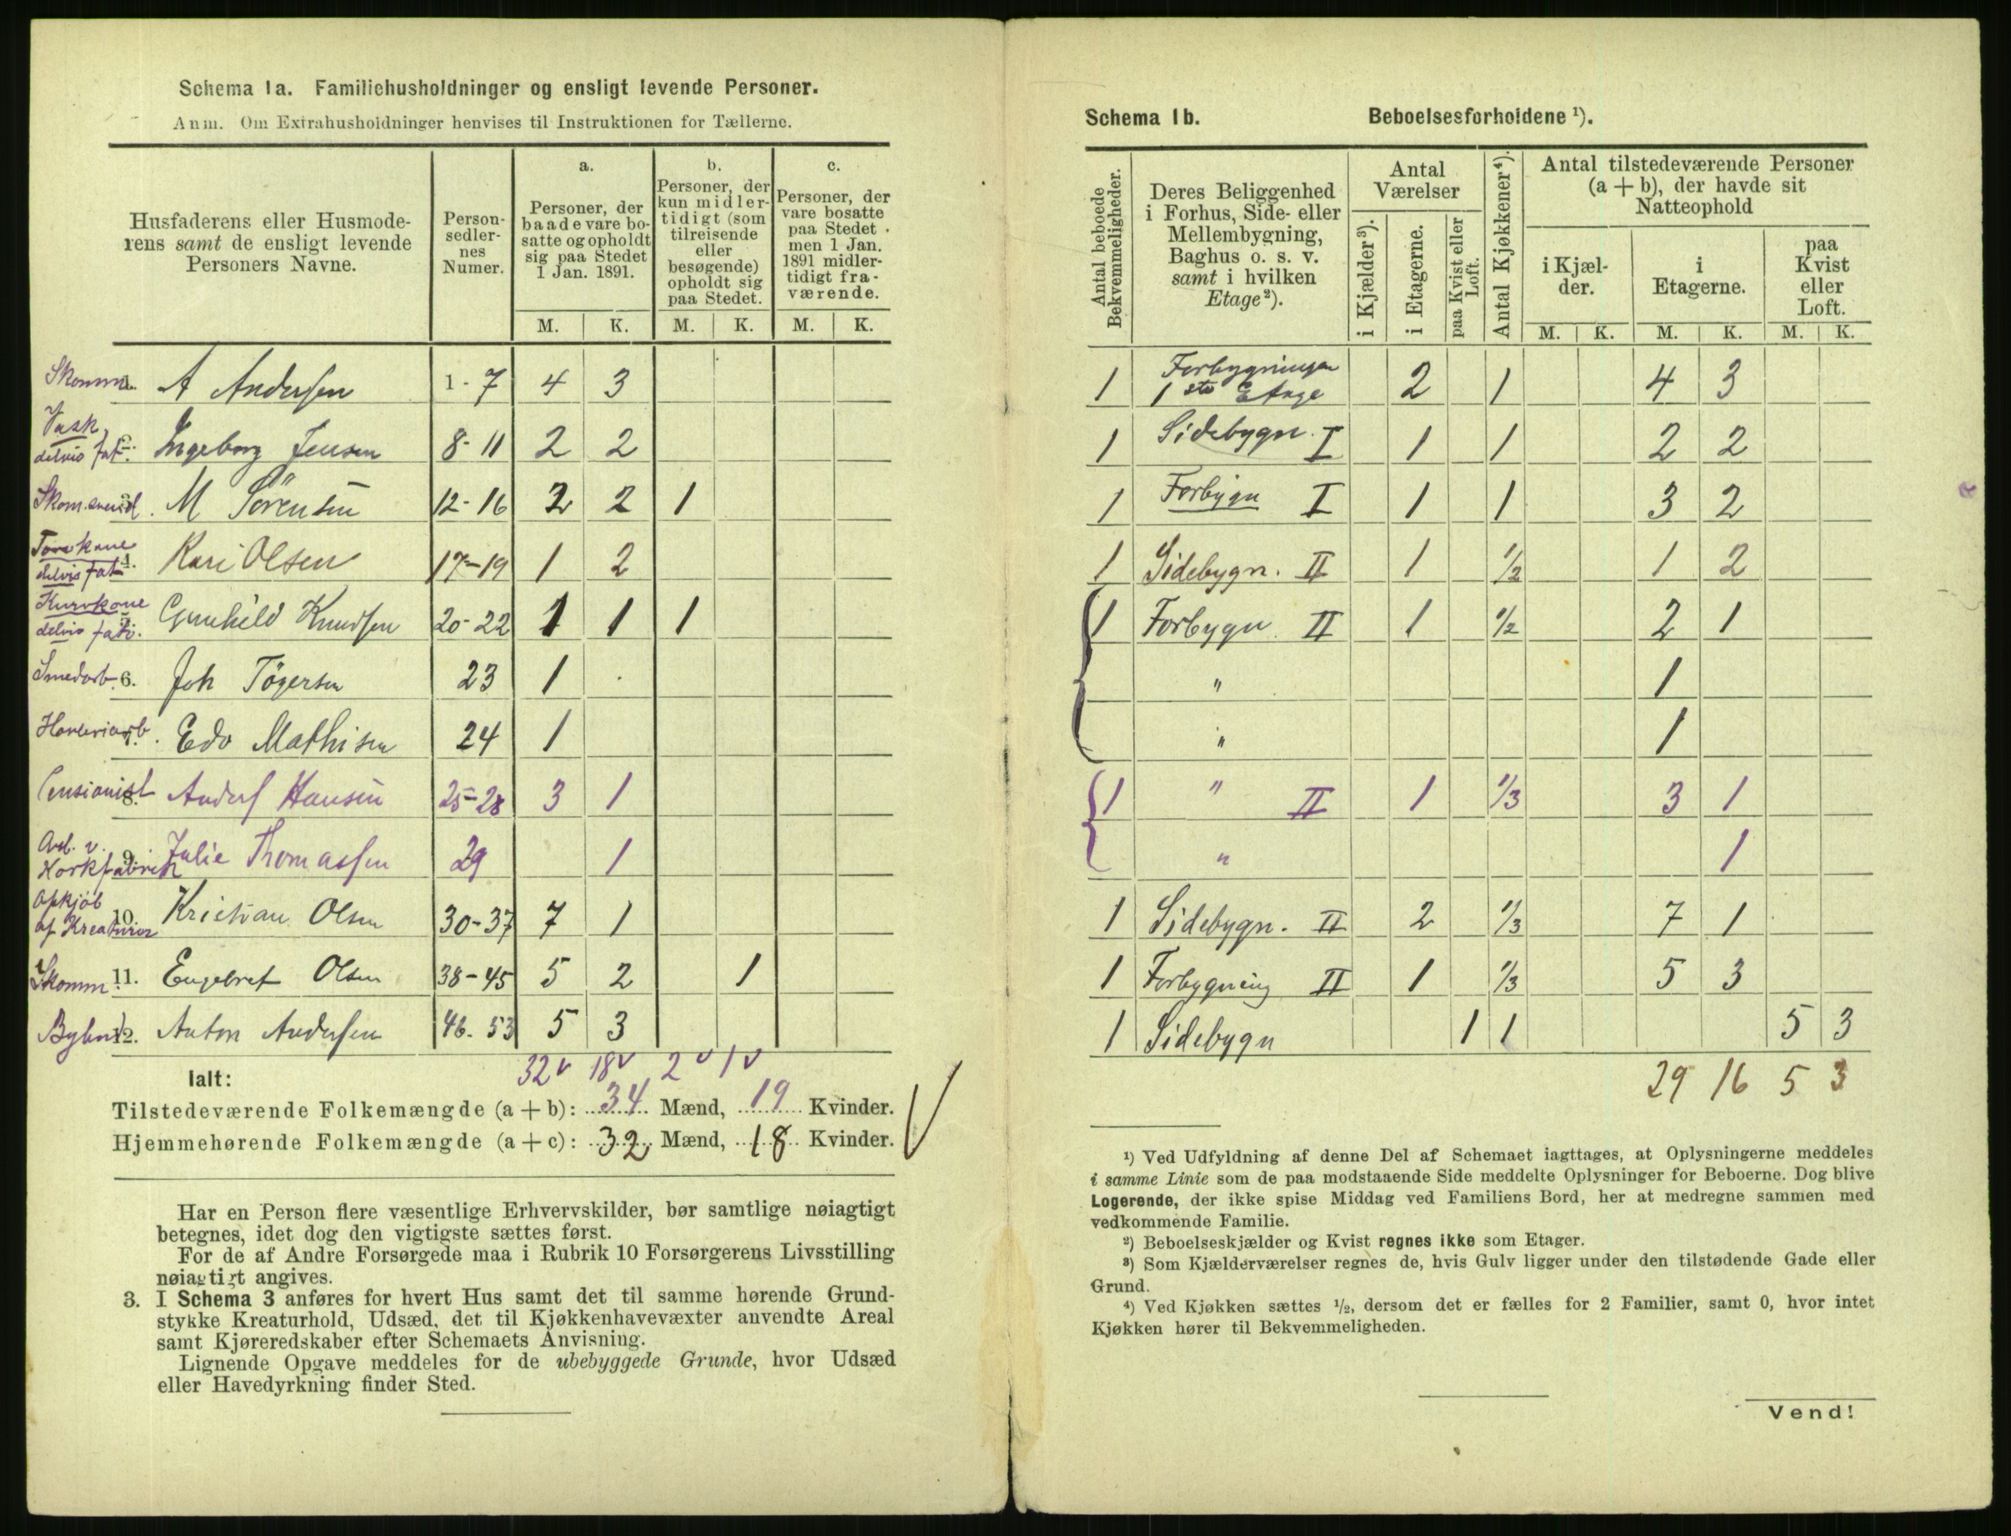 Schema 1a. Familiehusholdninger og ensligt levende Personer.
Anm. Om Extrahusholdninger henvises til Instruktionen for Tællerne.
Husfaderens eller Husmoderens samt de ensligt levende Personers Navne.
Personsedlernes Numer.
a. Personer, der baade vare bosatte og opholdt sig paa Stedet 1 Jan. 1891.
b. Personer, der kun midlertidigt (som tilreisende eller besøgende) opholdt sig paa Stedet.
c. Personer, der vare bosatte paa Stedet men 1 Jan. 1891 midlertidigt fraværende.
M. K. M. K. M. K.
Skomm. A Andersen 1-7 4 3
Vask, delvis fat. 2. Ingeborg Jensen 8-11 2 2
Skom.svend. M Sörensen 12-16 2 2 1
kone delvis fat 4. Kari Olsen 17-19 1 2
Kurvkone delvis fati. Gunhild Knudsen 20-22 1 1 1
Smedarb. 6. Joh Tögersen 23 1
7. Edv Mathisen 24 1
Pensionist 8. Anders Hansen 25-28 3 1
Arb. v. Korkfabrik 9. Julie Thomassen 29 1
Opkjöb af Kreaturer 10. Kristian Olsen 30-37 7 1
Skomm. 11. Engebret Olsen 38-45 5 2 1
12. Anton Andersen 46-53 5 3
32 v 18 v 2 v 1 v
Ialt:
Tilstedeværende Folkemængde (a + b): 34 Mænd, 19 Kvinder.
Hjemmehørende Folkemængde (a + c): 32 Mænd, 18 Kvinder.
Har en Person flere væsentlige Erhvervskilder, bør samtlige nøiagtigt
betegnes, idet dog den vigtigste sættes først.
For de af Andre Forsørgede maa i Rubrik 10 Forsørgerens Livsstilling
nøiagtigt angives.
3. I Schema 3 anføres for hvert Hus samt det til samme hørende Grund-
stykke Kreaturhold, Udsæd, det til Kjøkkenhavevæxter anvendte Areal
samt Kjøreredskaber efter Schemaets Anvisning.
Lignende Opgave meddeles for de ubebyggede Grunde, hvor Udsæd
eller Havedyrkning finder Sted.
Schema 1b. Beboelsesforholdene ¹).
Antal beboede Bekvemmeligheder.
Deres Beliggenhed i Forhus, Side- eller Mellembygning, Baghus o. s. v. samt i hvilken Etage²).
Antal Værelser
i Kjælder³).
i Etagerne.
paa Kvist eller Loft.
Antal Kjøkkener⁴).
Antal tilstedeværende Personer (a + b), der havde sit Natteophold
i Kjælder.
i Etagerne.
paa Kvist eller Loft.
M. K. M. K. M. K.
1 Forbygningen 1ste Etage 2 1 4 3
1 Sidebygn. I 1 1 2 2
1 Forbygn I 1 1 3 2
1 Sidebygn. II 1 1/2 1 2
1 Forbygn II 1 1/2 2 1
" 1
" 1
1 " II 1 1/3 3 1
" 1
1 Sidebygn. II 2 1/3 7 1
1 Forbygning II 1 1/3 5 3
1 Sidebygn 1 1 5 3
29 16 5 3
¹) Ved Udfyldning af denne Del af Schemaet iagttages, at Oplysningerne meddeles
i samme Linie som de paa modstaaende Side meddelte Oplysninger for Beboerne. Dog blive
Logerende, der ikke spise Middag ved Familiens Bord, her at medregne sammen med
vedkommende Familie.
²) Beboelseskjælder og Kvist regnes ikke som Etager.
³) Som Kjælderværelser regnes de, hvis Gulv ligger under den tilstødende Gade eller
Grund.
⁴) Ved Kjøkken sættes ½, dersom det er fælles for 2 Familier, samt 0, hvor intet
Kjøkken hører til Bekvemmeligheden.
Vend!